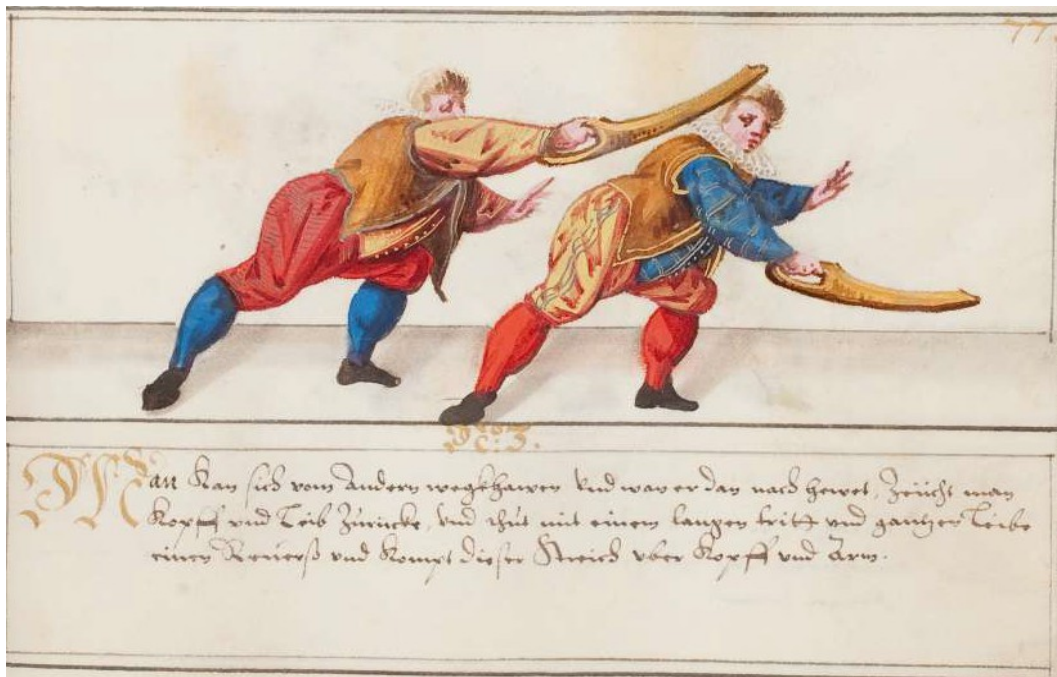 77
N° 3.
Man Kan sich vom Andern wegkhawen vnd wan er dan nach hewet, Zeücht man
Kopff vnd Leib Zurücke, vnd thut mit einem langen tritt vnd gantzen Leibe
einen Reuerß vnd Kompt dieser Streich vber Kopff vnd Arm.